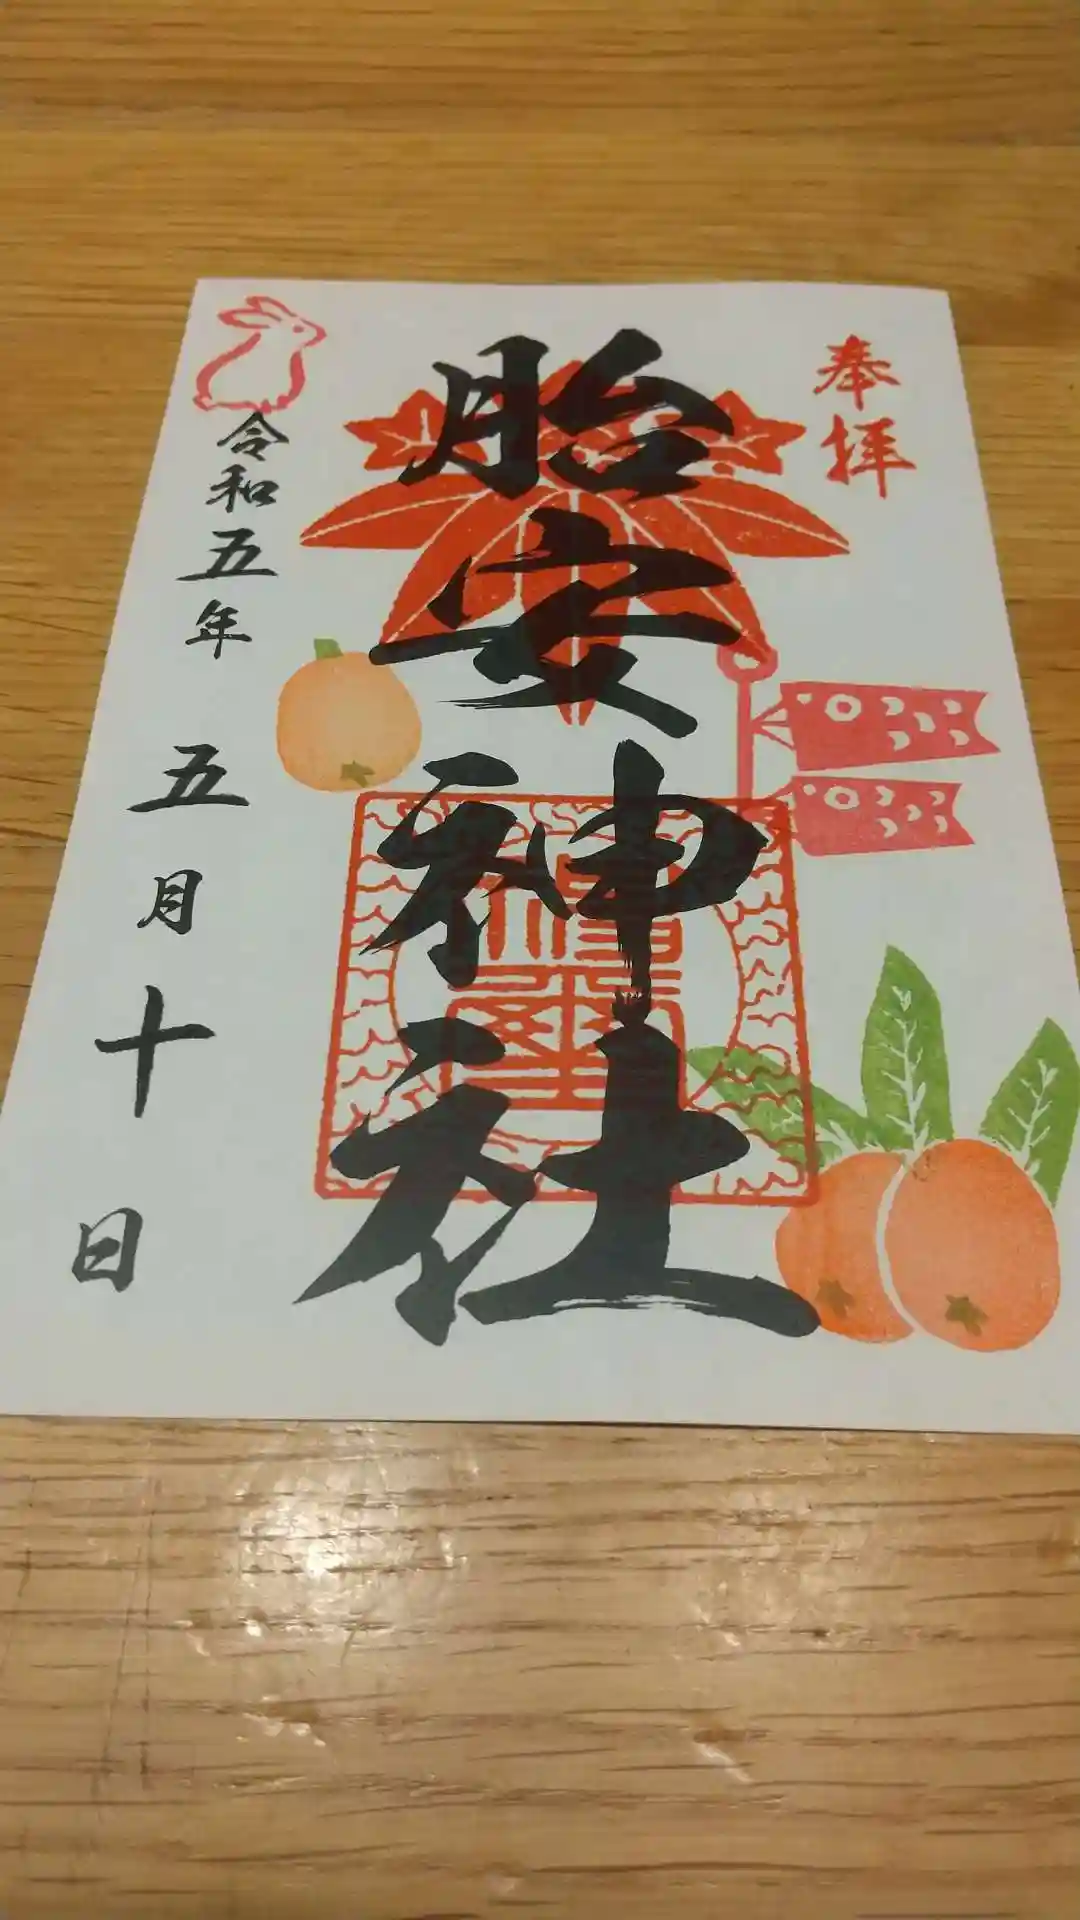 奉拝
胎安神社
令和五年五月十日